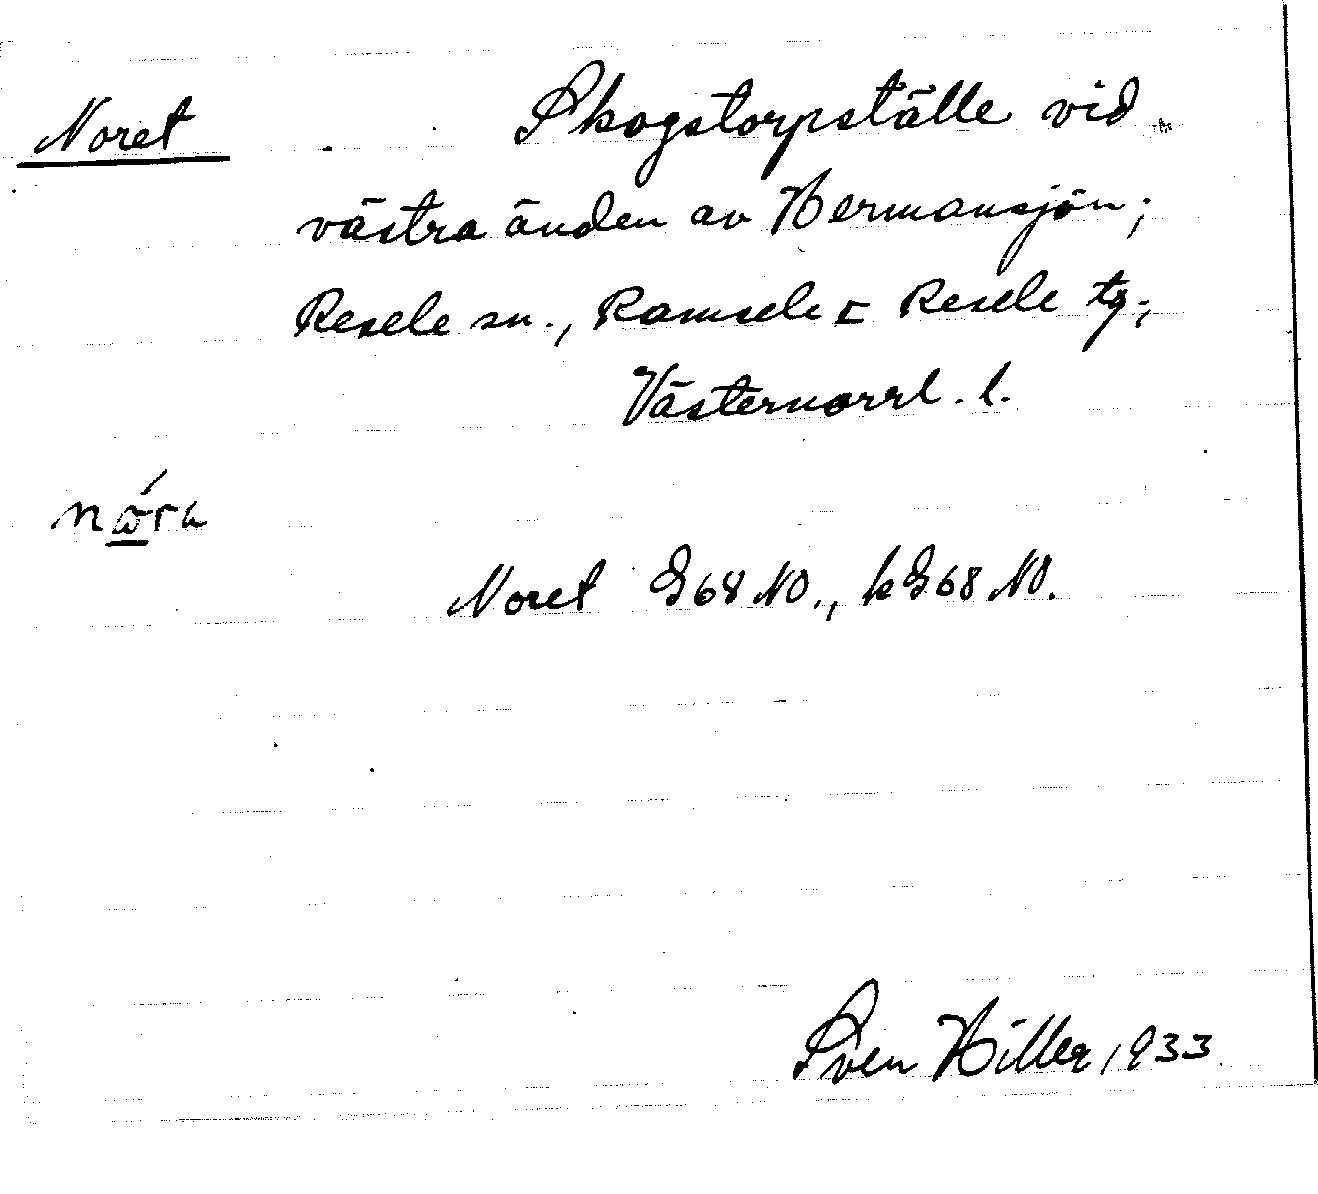 Noret Skogstorpställe vid
västra änden av Hermansjön;
Resele sn., Ramsele o Resele tg.,
Västernorrl. l.
nóra
Noret G68 NO., kG68 NO.
Sven Hiller, 1933